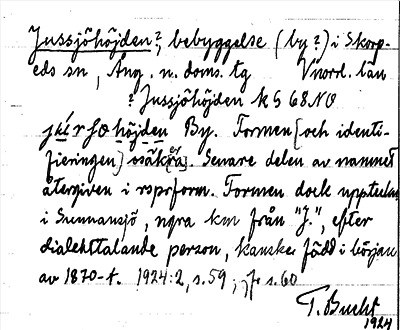 Jussjöhöjden?, bebyggelse (by?) i Skorp-
eds sn, Ång. n. doms. tg Vnorl. län
? Jussjöhöjden k S 68 NO
höjden By. Formen {och identi-
fieringen} osäk{er}ra}. Senare delen av namnet
återgiven i rsprform. Formen dock uppteckn.
i Sunnansjö, några km från "J.", efter
dialekttalande person, kanske född i början
av 1870-t. 1924:2, s. 59; jfr s. 60
T. Bucht
1924